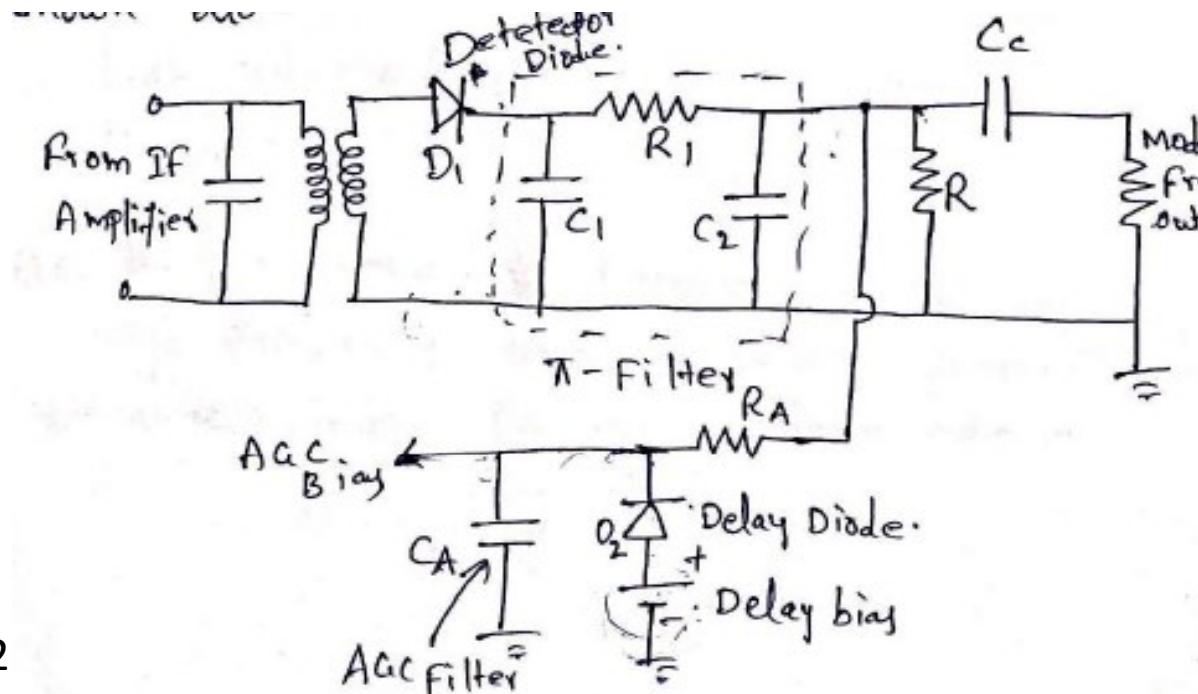 Detetector
Diode.
Cc
From If
Amplifier
D1
R1
C1
C2
R
π-Filter
RA
AGC
Bias
CA
D2
Delay Diode.
+
-
Delay bias
AGC Filter
2